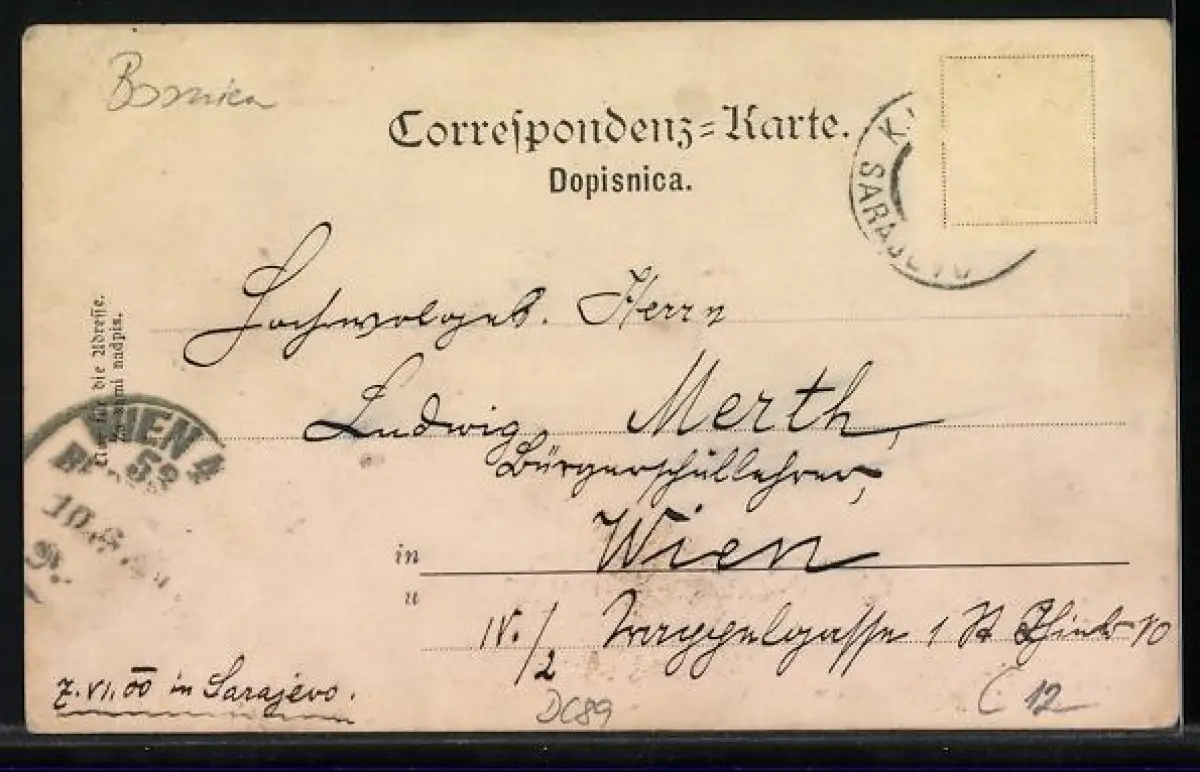 Bosnien
Correſpondenz-Karte.
Dopisnica.
SARAJEVO
Hochwolgeb. Herrn
Ludwig Merth,
Bürgerschullehrer,
in Wien
u
IV./2
1 St
Nur für die Adreſſe.
nadpis.
WIEN 4
53
10.6.
7.VI.00 in Sarajevo.
DC89
12